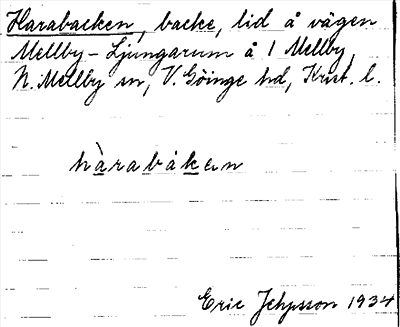 Harabacken, backe, lid å vägen
Mellby - Ljungarum å 1 Mellby,
N. Mellby sn, V. Göinge hd, Krist. l.
hàrabàkɐn
Eric Jehpsson 1934